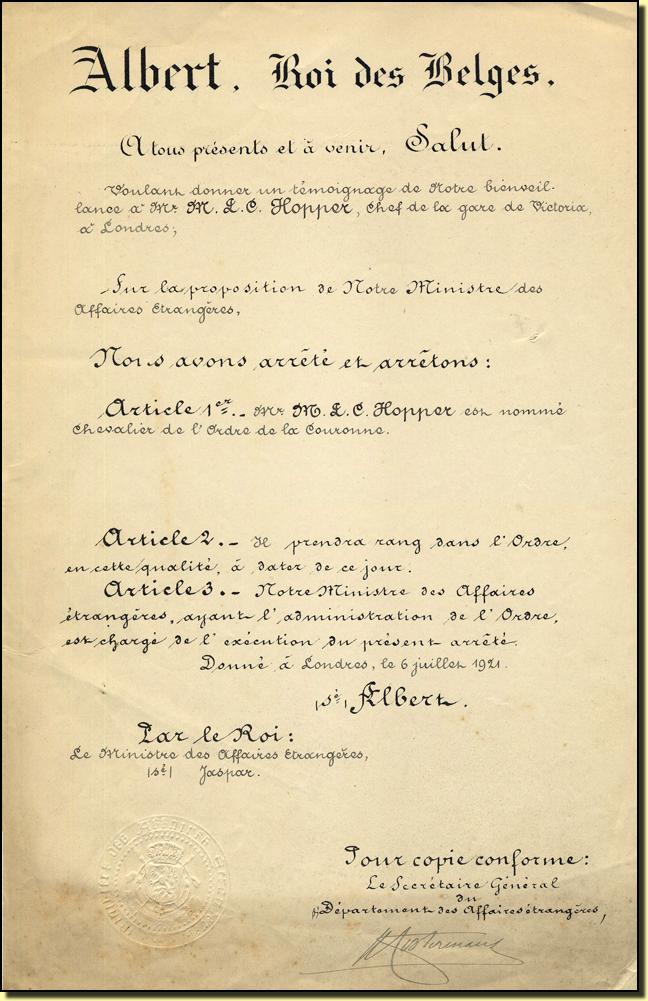 Albert, Roi des Belges.
A tous présents et à venir, Salut.
Voulant donner un témoignage de Notre bienveil-
lance à Mr. M. L. C. Hopper, chef de la gare de Victoria,
à Londres;
Sur la proposition de Notre Ministre des
Affaires Etrangères,
Nous avons arrêté et arrêtons:
Article 1er.- Mr. M. L. C. Hopper est nommé
Chevalier de l'Ordre de la Couronne.
Article 2.- Il prendra rang dans l'Ordre,
en cette qualité, à dater de ce jour.
Article 3.- Notre Ministre des Affaires
étrangères, ayant l'administration de l'Ordre,
est chargé de l'exécution du présent arrêté.
Donné à Londres, le 6 juillet 1921.
(sé) Albert.
Par le Roi:
Le Ministre des Affaires Etrangères,
(sé) Jaspar.
Pour copie conforme:
Le Secrétaire Général
du
Département des Affaires étrangères,